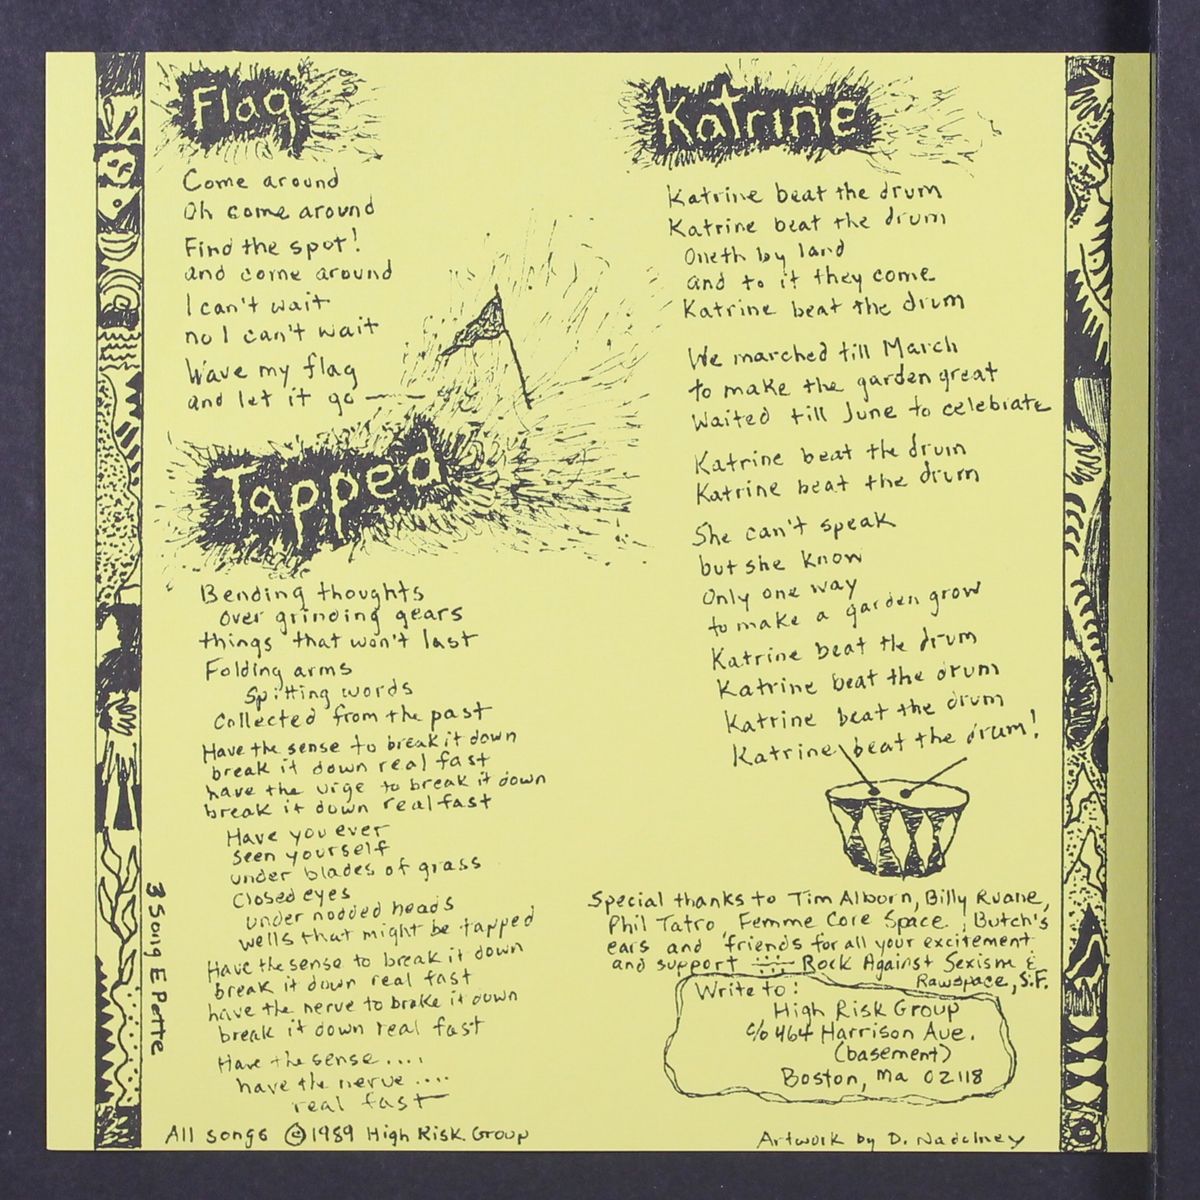 Flag
Come around
Oh come around
Find the spot!
and come around
I can't wait
no I can't wait
Wave my flag
and let it go
Tapped
Bending thoughts
over grinding gears
things that won't last
Folding arms
Spitting words
Collected from the past
Have the sense to break it down
break it down real fast
have the urge to break it down
break it down real fast
Have you ever
seen yourself
under blades of grass
Closed eyes
under nodded heads
wells that might be tapped
Have the sense to break it down
break it down real fast
have the nerve to brake it down
break it down real fast
Have the sense....
have the nerve....
real fast
3 Song E Pette
All songs ©1989 High Risk Group
Katrine
Katrine beat the drum
Katrine beat the drum
by land
and to it they come
Katrine beat the drum
We marched till March
to make the garden great
Waited till June to celebrate
Katrine beat the drum
Katrine beat the drum
She can't speak
but she know
Only one way
to make a garden grow
Katrine beat the drum
Katrine beat the drum
Katrine beat the drum
Katrine beat the drum!
Special thanks to Tim Alborn, Billy Ruane,
Phil Tatro, Femme Core Space, Butch's
ears and friends for all your excitement
and support Rock Against Sexism &
Rawspace, S.F.
Write to:
High Risk Group
c/o 464 Harrison Ave.
(basement)
Boston, Ma 02118
Artwork by D. Nadelney